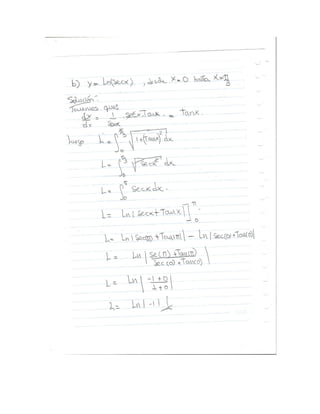 b) y = Ln(secx), desde x=0 hasta x=π/3
Solución:
Tenemos que:
dy/dx = 1/secx · secx·Tanx = Tanx.
luego L = ∫₀^π/3 √(1+(Tanx)²) dx
L = ∫₀^π/3 √(secx²) dx
L = ∫₀^π secx dx.
L = Ln|secx+Tanx|]₀^π
L = Ln|sec(π)+Tan(π)| - Ln|sec(0)+Tan(0)|
L = Ln|sec(π)+Tan(π)/sec(0)+Tan(0)|
L = Ln|-1+0/1+0|
L = Ln|-1|